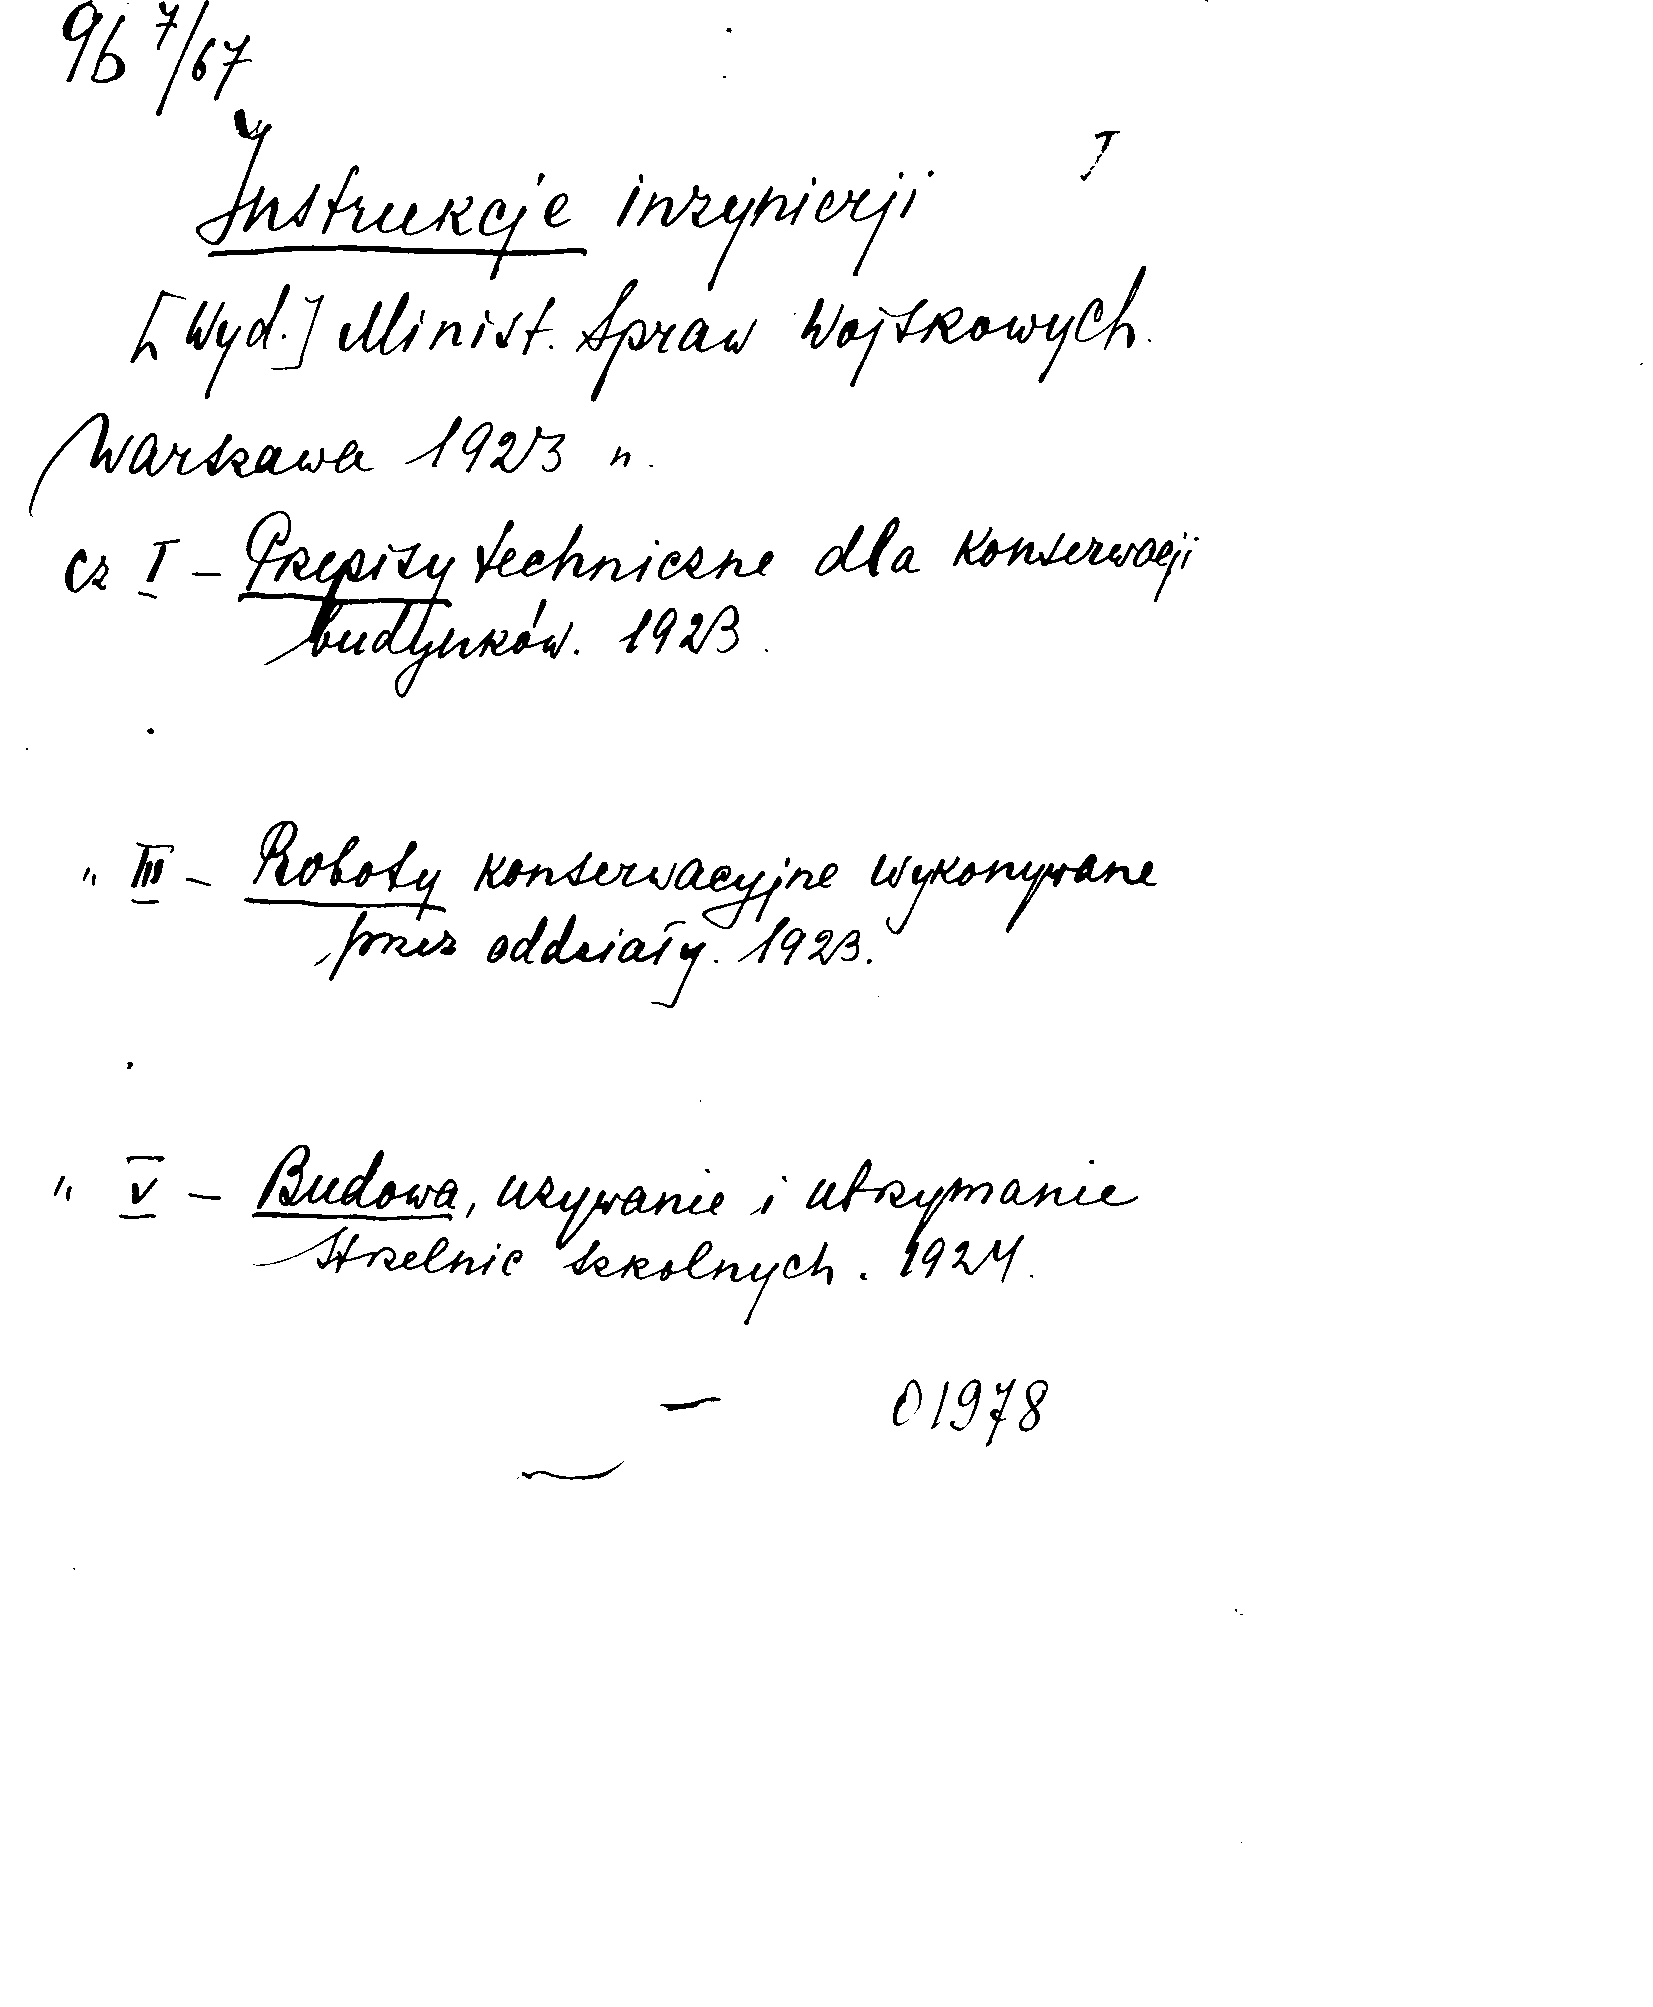 96 7/67
I
Instrukcje inzynierji
[Wyd.] Minist. Spraw Wojskowych.
Warszawa 1923 n.
cz I – Przepisy techniczne dla konserwacji
budynków. 1923.
" III – Roboty konserwacyjne wykonywane
przez oddziały. 1923.
" V – Budowa, uzywanie i utrzymanie
strzelnic szkolnych. 1924.
– 01978